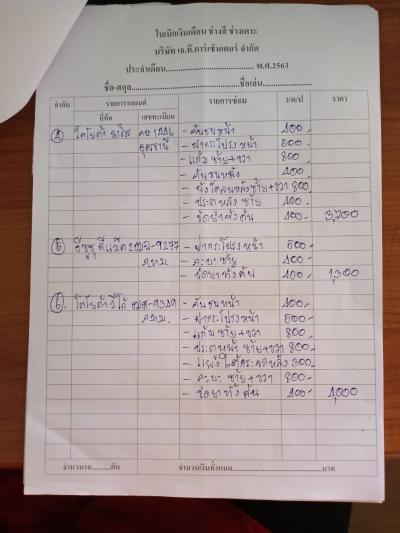 ใบเบิกเงินเดือน ช่างสี ช่างเคาะ
บริษัท เจ.ที.คาร์เซ็นเตอร์ จำกัด
ประจำเดือน.................................. พ.ศ.2563
ชื่อ-สกุล..........................................ชื่อเล่น........................
ลำดับ รายการรถยนต์ รายการซ่อม ว/ด/ป ราคา
ยี่ห้อ เลขทะเบียน
โตโยต้า - กันชนหน้า 400.-
อุดรธานี - ฝากระโปรงหน้า 500.-
- แก้มซ้าย+ขวา 800
- กันชนหลัง 400.-
ซ้าย+ขวา 800.-
- ประตูหลังซ้าย 400.-
- ขัดยาทั้งคัน 400.- 3,700
อีซูซุ ดีแม็ค -9277 - ฝากระโปรงหน้า 500.-
กทม. - กะบะซ้าย 400.-
- ขัดยาทั้งคัน 400.- 1,300
โตโยต้าวีโก้ -9349 - กันชนหน้า 400.-
กทม. - ฝากระโปรงหน้า 500.-
- แก้มซ้าย+ขวา 800.-
- ประตูหน้าซ้าย+ขวา 800.-
300.-
- กะบะ ซ้าย+ขวา 800.-
- ขัดยาทั้งคัน 400.- 4,000
จำนวนรถ..........คัน จำนวนเงินทั้งหมด..............................................บาท